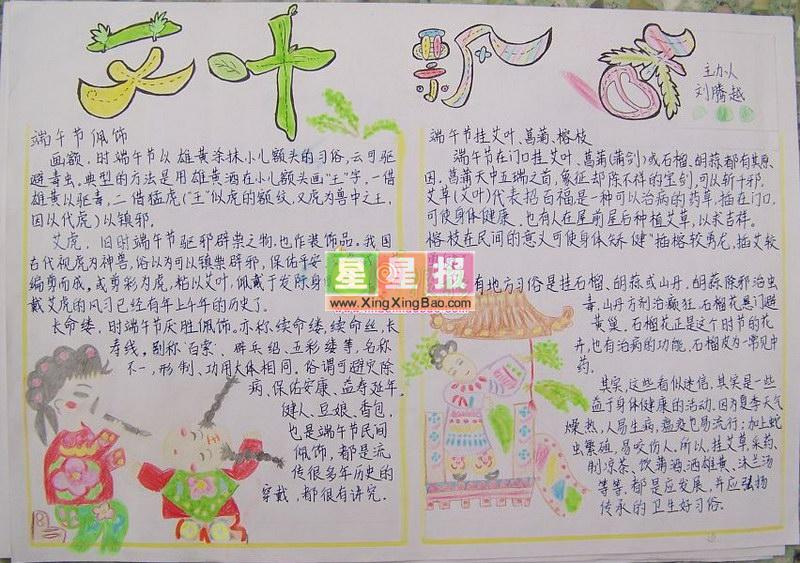 艾叶飘香
主办人
刘腾越
端午节佩饰
画额,时端午节以雄黄涂抹小儿额头的习俗,云可驱
避毒虫。典型的方法是用雄黄酒在小儿额头画“王”字,一借
雄黄以驱毒,二借猛虎(“王”似虎的额纹,又虎为兽中之王,
因以代虎)以镇邪。
艾虎,旧时端午节驱邪辟祟之物,也作装饰品。我国
古代视虎为神兽,俗以为可以镇祟辟邪、保佑平安
编剪而成,或剪彩为虎,粘以艾叶,佩戴于发际身
戴艾虎的风习已经有年上午年的历史了。
长命缕,时端午节厌胜佩饰。亦称续命缕,续命丝,长
寿线,别称“百索”、辟兵绍、五彩缕等,名称
不一,形制、功用大体相同。俗谓可避灾除
病、保佑安康、益寿延年。
健人、豆娘、香包,
也是端午节民间
佩饰,都是流
传很多年历史的
穿戴,都很有讲究。
星星报
www.XingXingBao.com
端午节挂艾叶、菖蒲、榕枝
端午节在门口挂艾叶、菖蒲(蒲剑)或石榴、胡蒜都有其原
因。菖蒲天中五瑞之首,象征却除不祥的宝剑,可以斩千邪。
艾草(艾叶)代表招百福是一种可以治病的药草,插在门口,
可使身体健康、也有人在屋前屋后种植艾草,以求吉祥。
榕枝在民间的意义可使身体矫健“插榕较勇龙,插艾较
有地方习俗是挂石榴、胡蒜或山丹,胡蒜除邪治虫
毒,山丹方剂治癫狂。石榴花悬门避
黄巢。石榴花正是这个时节的花
卉,也有治病的功能。石榴皮为一常见中
药。
其实,这些看似迷信,其实是一些
益于身体健康的活动。因为夏季天气
燥热,人易生病,瘟疫也易流行;加上蛇
虫繁殖,易咬伤人。所以,挂艾草,采药、
制凉茶、饮蒲酒、洒雄黄、沐兰汤
等等,都是应发展,并应强物
传承的卫生好习俗。